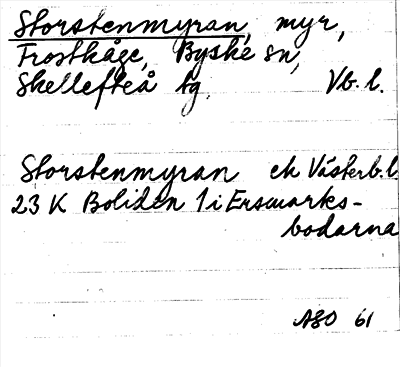 Storstenmyran, myr,
Frostkåge, Byske sn,
Skellefteå tg. Vb. l.
Storstenmyran ek Västerb. l
23 K Boliden 1 i Ersmarks-
bodarna
ASO 61